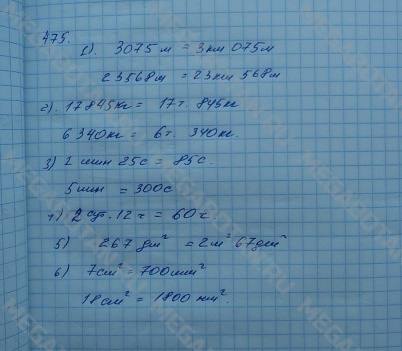 475.
1). 3075 м = 3 км 075 м
23568 м = 23 км 568 м
2). 17845 кг = 17 т. 845 кг
6340 кг = 6 т. 340 кг.
3) 1 мин 25 с = 85 с.
5 мин = 300 с
4) 2 сут. 12 ч = 60 ч
5) 267 дм² = 2 м² 67 дм²
6) 7 см² = 700 мм²
18 см² = 1800 мм².